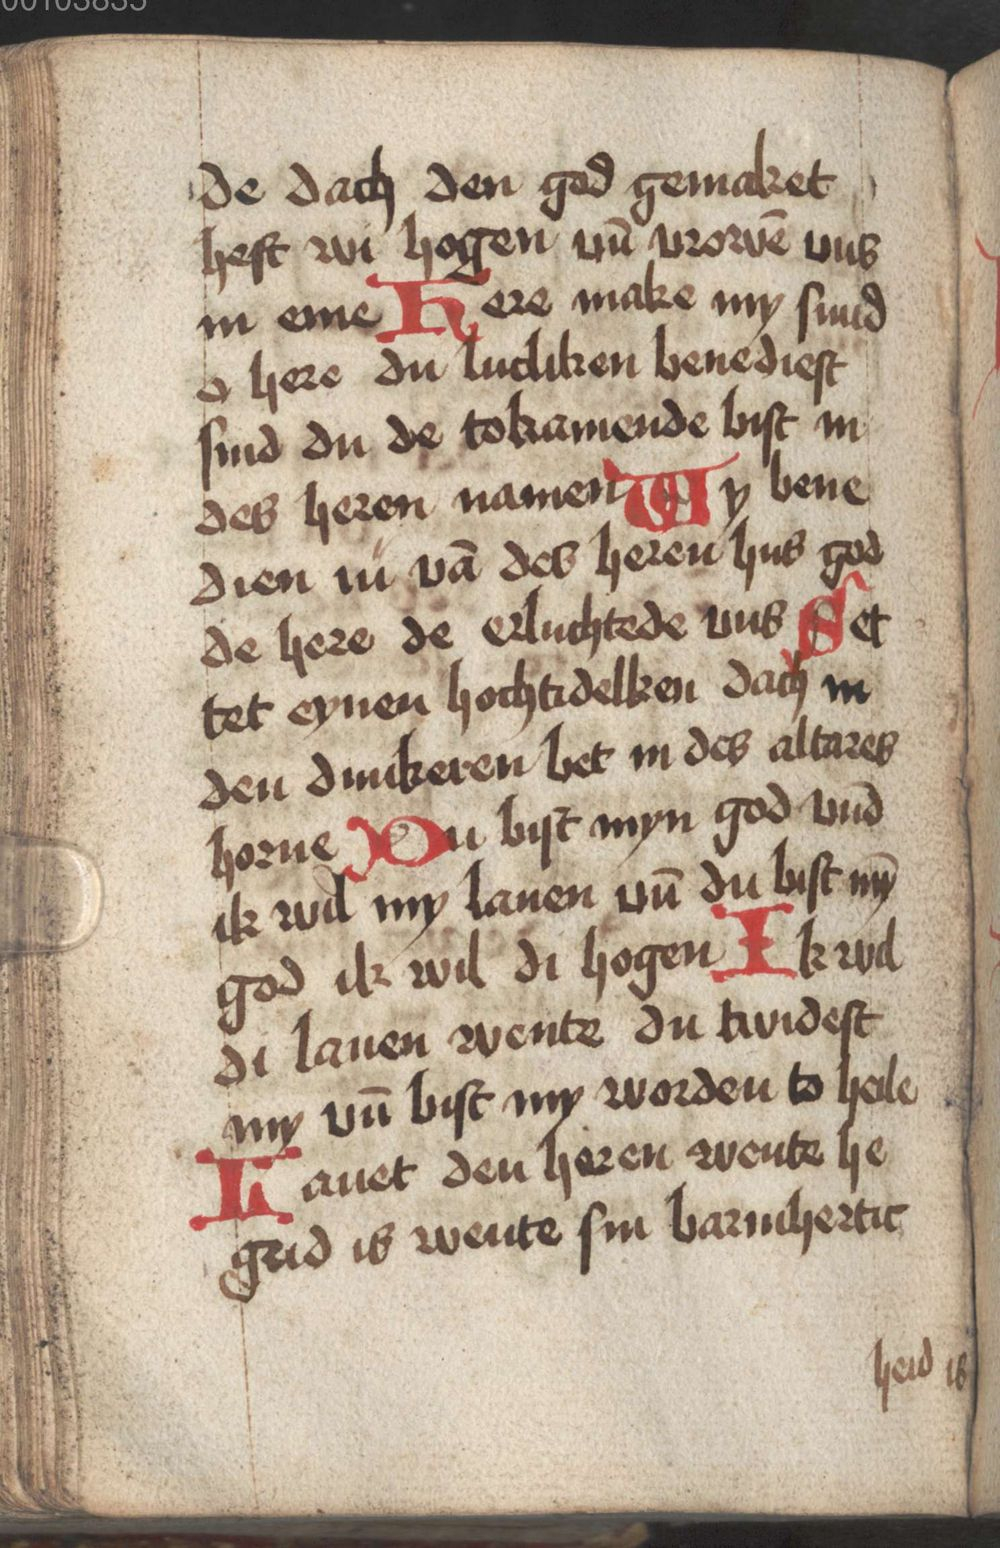 00103835
de dach den god gemaket
heft wi hogen vn̄ vrowē vns
in eme Here make my sund
o here du lucliken benediest
sind du de tokamende bist in
des heren namen Wy bene
dien iu vā des heren hus god
de here de erluchtede vns Set
tet eynen hochtidelken dach in
den dunkeren bet in des altares
horne Du bist myn god vnd
ik wil my lauen vn̄ du bist mȳ
god ik wil di hogen Ik wil
di lauen wente du twidest
my vn̄ bist my worden to heile
Lauet den heren wente he
gud is wente sin barmhertic
heid is